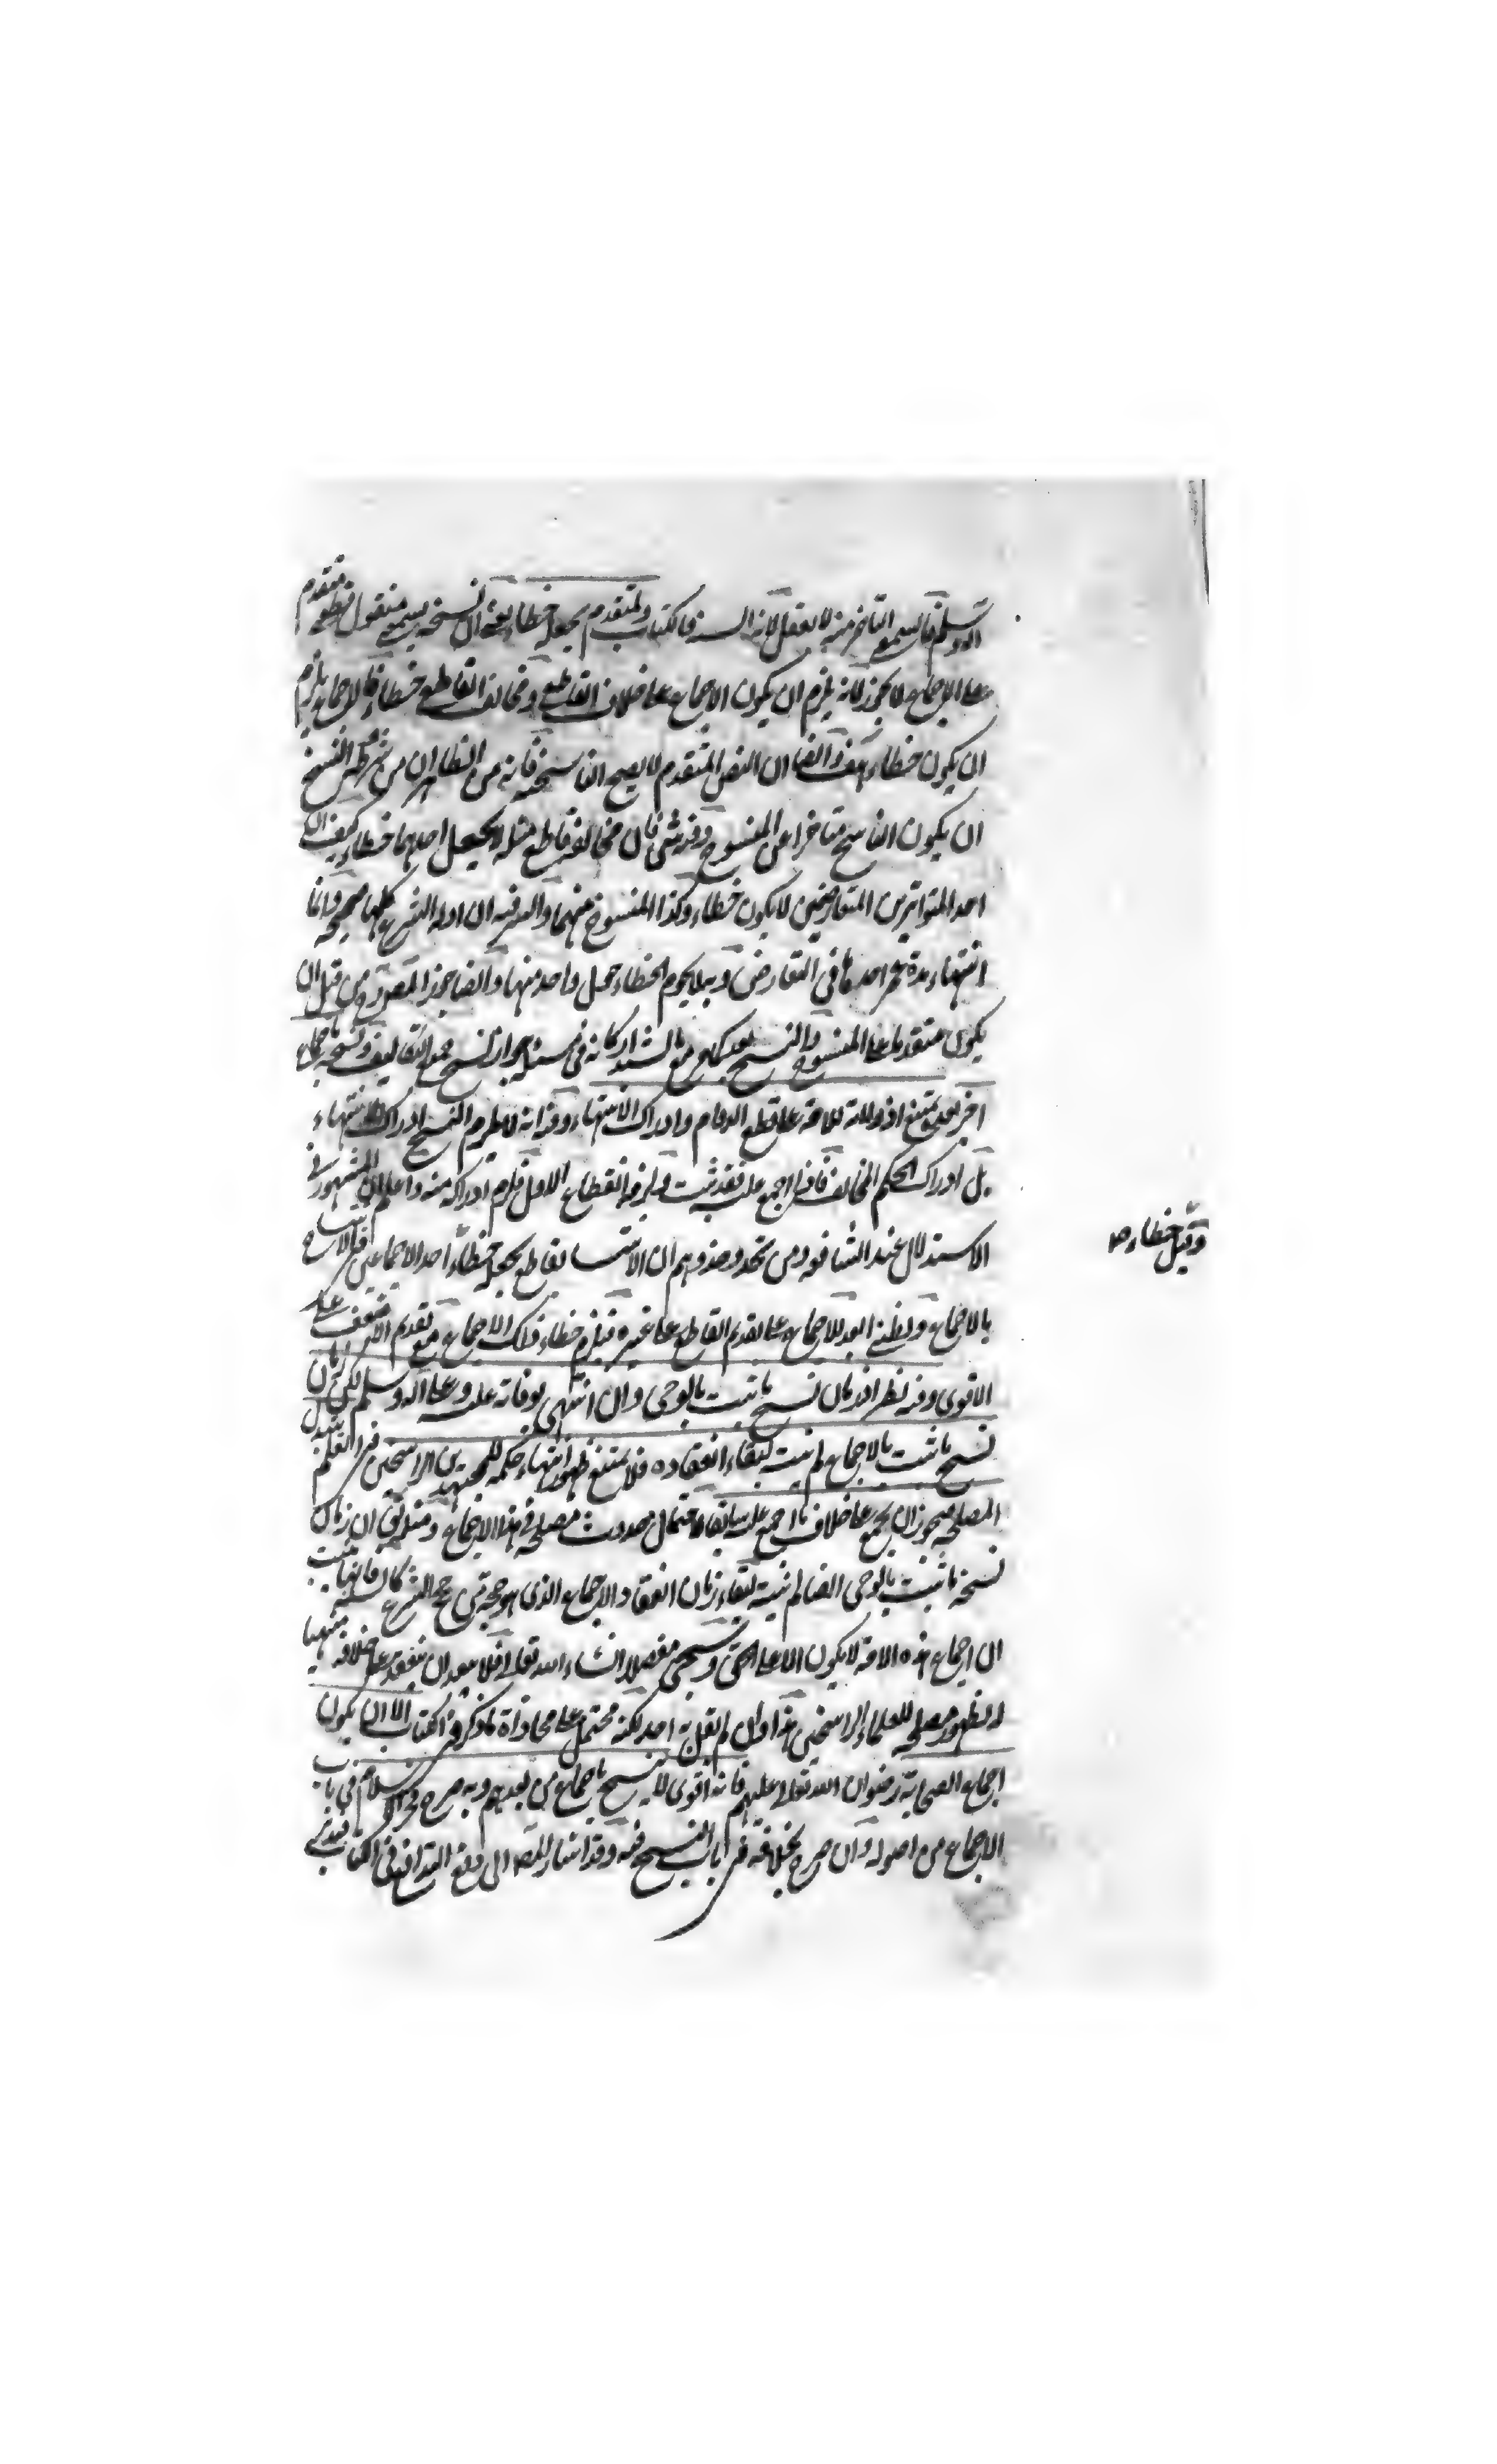 اله وسلم فالسمع التاخر منه لا يعقل لانه الـ فالكتاب والمتقدم يجعله خطاء يعني ان نسخه بسمعي منقول قطعي متقدم
على الاجماع لا يجوز لانه يلزم ان يكون الاجماع على خلاف القاطع ومخالف القاطع خطاء فالاجماع يلزم
ان يكون خطاء هف وايضا ان النص المتقدم لا يصح الناسخيه فانه من الظاهر ان من شرط النسخ
ان يكون الناسخ متاخرا عن المنسوخ وفيه شي فان مخالفة قاطع مثله لا يجعل احدهما خطاء كيف ان
احد المتواترين المتعارضين لا يكون خطاء وكذا المنسوخ منهما والسر فيه ان ادلة الشرع كلها صحيحة وانما
انتهاء مدة احدها في التعارض وبهذا لا يحوم الخطاء حول واحد منها وايضا جوز المصرح من قبل ان
يكون متقدما على المنسوخ والنسخ بعد في مسئلة جواز نسخ جميع التكاليف ونسخه باجماع
اخر بعده يمتنع اذ ولاية للامة على قطع الدوام وادراك الانتهاء وفيه انه لا يلزم النسخ ادراك الانتهاء
بل ادراك الحكم المخالف فاذا اجمع عليه فقد ثبت ولزم انقطاع الاول فلزم ادراكه منه واعلم ان المشهور في
الاستدلال عند الشافعيه ومن يحذو حذوهم ان الانتساخ بقاطع يجعله خطاء احد الاجماعين قبل الانتساخ
وقيل خطاءه ص
بالاجماع وبظني ابعد للاجماع على تقديم القاطع على غيره فيلزم خطاء ذلك الاجماع مع تقديم الاضعف على
الاقوى وفيه نظر اذ زمان نسخ ما ثبت بالوحي وان انتهى بوفاته عليه وعلى اله وسلم لكن زمان
نسخ ما ثبت بالاجماع لم ينته لبقاء انعقاده فلا يمتنع ظهور انتهاء حكمه للمجتهدين الراسخين في العلم بتبدل
المصلحة فيجوز ان يجمع على خلاف ما اجمع عليه سابقا لاحتمال حدوث مصلحة في هذا الاجماع ومثله يقال ان زمان
نسخه ما ثبت بالوحي ايضا لم ينته لبقاء زمان انعقاد الاجماع الذي هو حجة من حجج الشرع كان فانها ثبت
ان اجماع هذه الامة لا يكون الا على الحق وسيجيء مفصلا ان شاء الله تعالى فلا يبعد ان ينعقد على خلافه منتهيا
لظهور مصلحة للعلماء الراسخين هذا وان لم يقل به احد لكنه محتمل على محاذاة ما ذكر في الكتاب الا ان يكون
اجماع الصحابة رضوان الله تعالى عليهم فانه اقوى لا ينسخ باجماع من بعدهم وبه صرح فخر الاسلام في باب
الاجماع من اصوله وان صرح بخلافه في باب النسخ فيه وقد اشار المصـ الى دفع التدافع في الكتاب